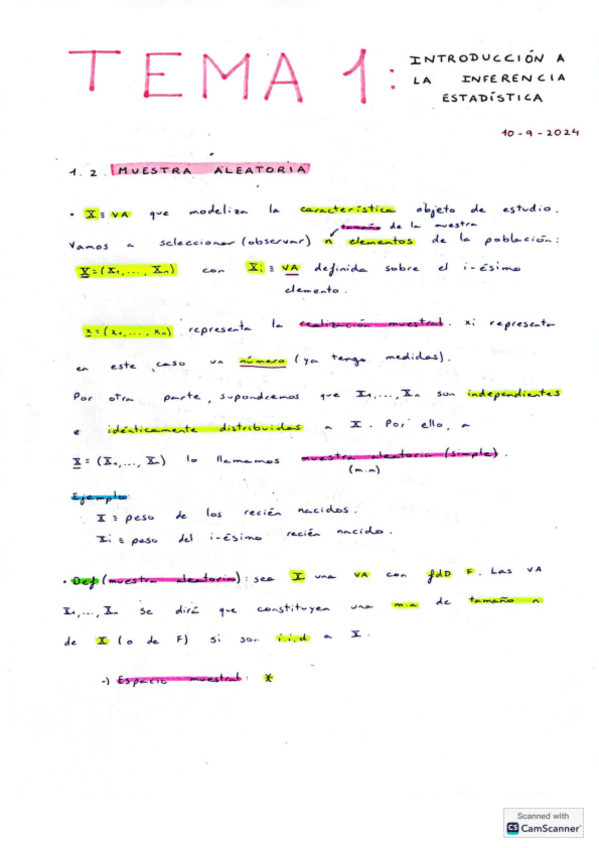 TEMA 1: INTRODUCCIÓN A
LA INFERENCIA
ESTADÍSTICA
10-9-2024
1.2. MUESTRA ALEATORIA
• X ≡ VA que modeliza la característica objeto de estudio.
tamaño de la muestra
Vamos a seleccionar (observar) n elementos de la población:
X = (X₁, ..., Xₙ) con Xi ≡ VA definida sobre el i-ésimo
elemento.
x = (x₁, ..., xₙ) representa la realización muestral. xi representa
en este caso un número (ya tengo medidas).
Por otra parte, supondremos que X₁, ..., Xₙ son independientes
e idénticamente distribuidas a X. Por ello, a
X = (X₁, ..., Xₙ) lo llamamos muestra aleatoria (simple).
(m.a)
Ejemplo:
X ≡ peso de los recién nacidos.
Xi ≡ peso del i-ésimo recién nacido.
• Def (muestra aleatoria): sea X una VA con fdD F. Las VA
X₁, ..., Xₙ se dirá que constituyen una m.a de tamaño n
de X (o de F) si son i.i.d a X.
→) Espacio muestral: X
Scanned with
CS CamScanner